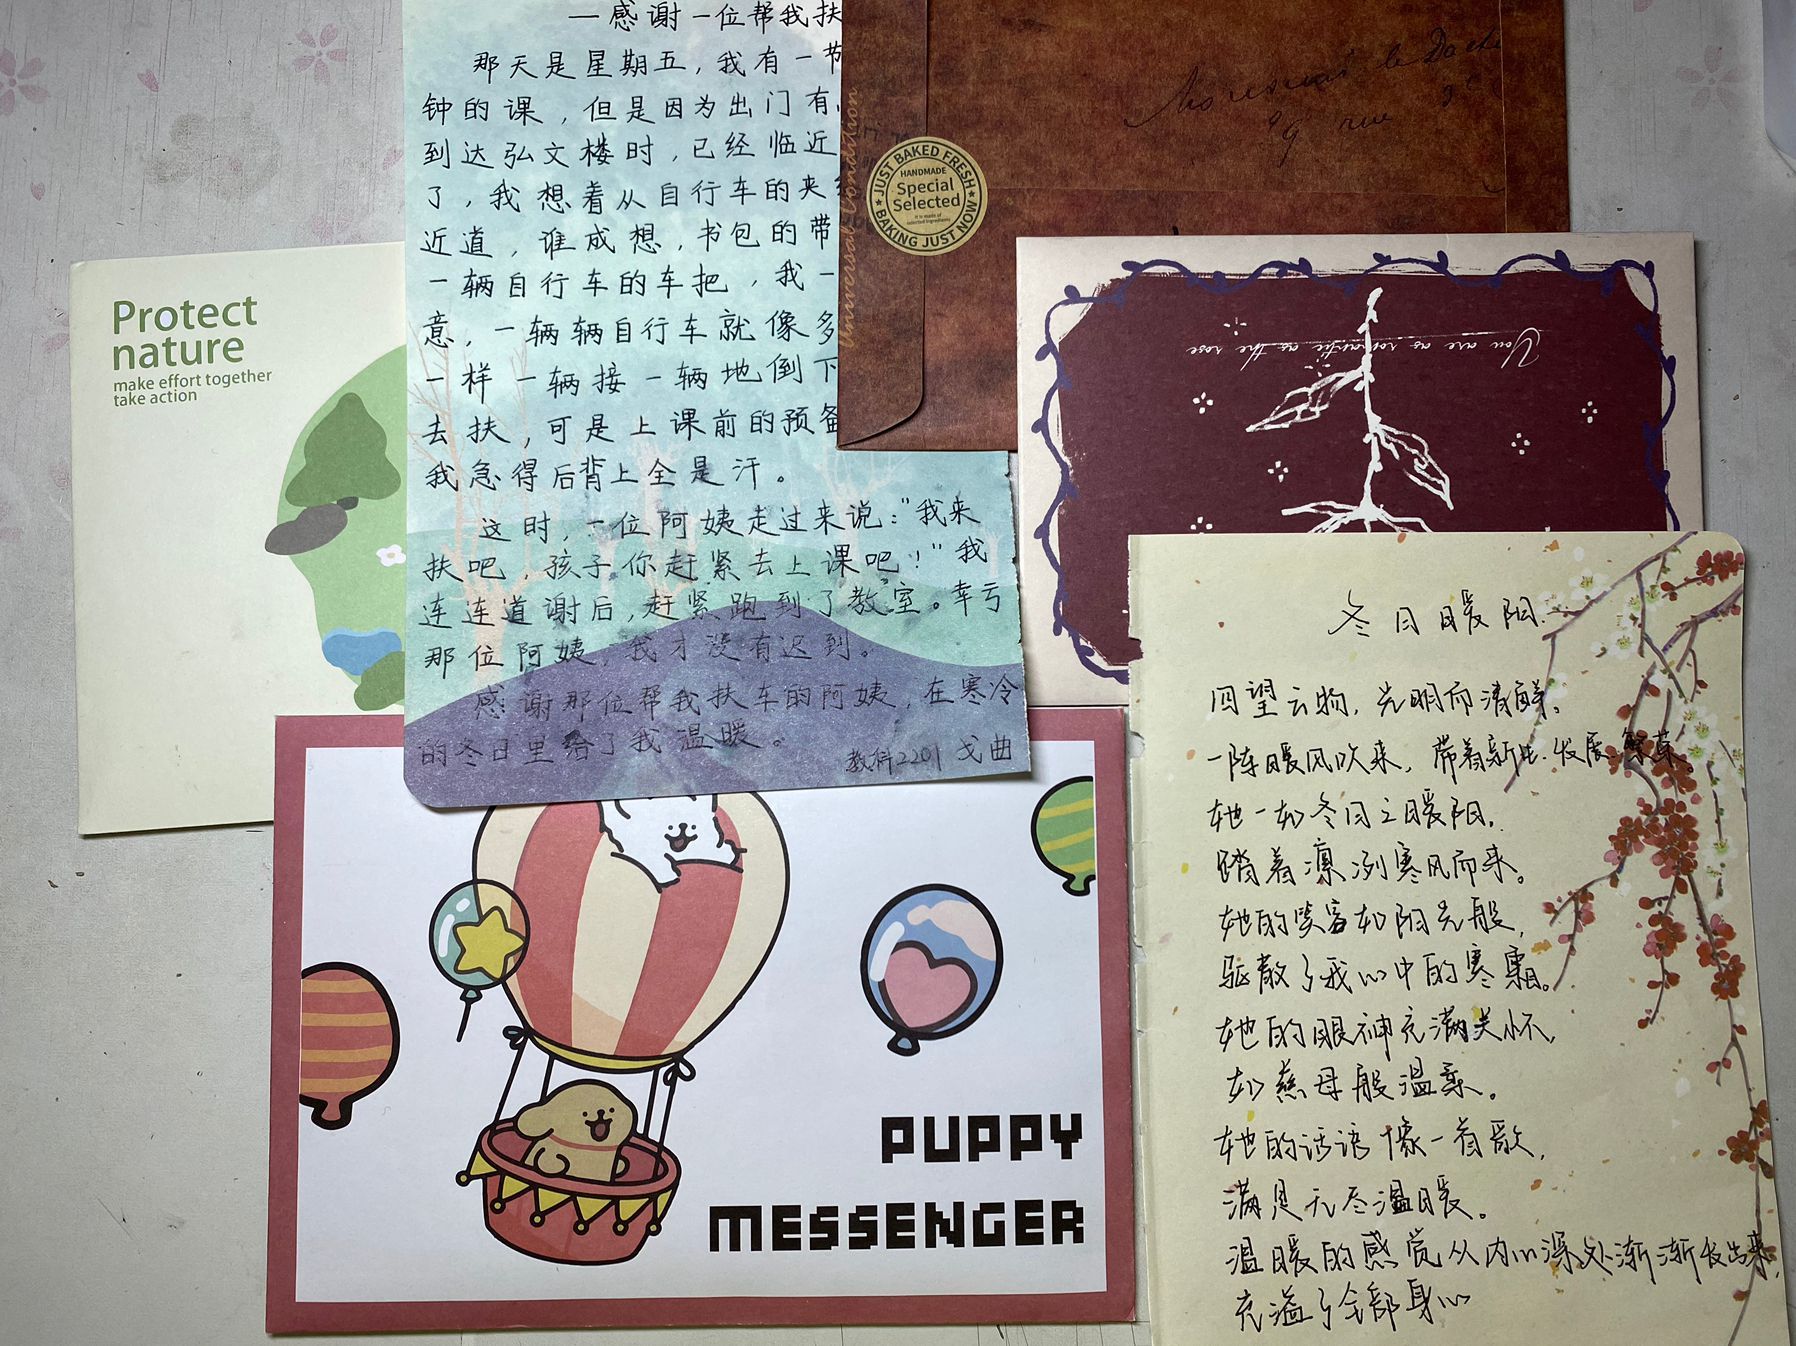 一感谢一位帮我扶
那天是星期五，我有一节
钟的课，但是因为出门有
到达弘文楼时，已经临近
了，我想着从自行车的夹
近道，谁成想，书包的带
一辆自行车的车把，我一
意，一辆辆自行车就像多
一样一辆接一辆地倒下
去扶，可是上课前的预备
我急得后背上全是汗。
这时，一位阿姨走过来说："我来
扶吧，孩子你赶紧去上课吧！"我
连连道谢后，赶紧跑到了教室。幸亏
那位阿姨，我才没有迟到。
感谢那位帮我扶车的阿姨，在寒冷
的冬日里给了我温暖。
教科2201 戈曲
Universal Condition
JUST BAKED FRESH
HANDMADE
Special
Selected
It is made of
selected ingredients
BAKING JUST NOW
rue
Protect
nature
make effort together
take action
You are as romantic as the rose
冬日暖阳
四望云物，光明而清鲜。
一阵暖风吹来，带着新生.发展.繁荣。
她一如冬日之暖阳，
踏着凛冽寒风而来。
她的笑容如阳光般，
驱散了我心中的寒霜。
她的眼神充满关怀，
如慈母般温柔。
她的话语像一首歌，
满是无尽温暖。
温暖的感觉从内心深处渐渐发出来，
充溢了全部身心
PUPPY
MESSENGER